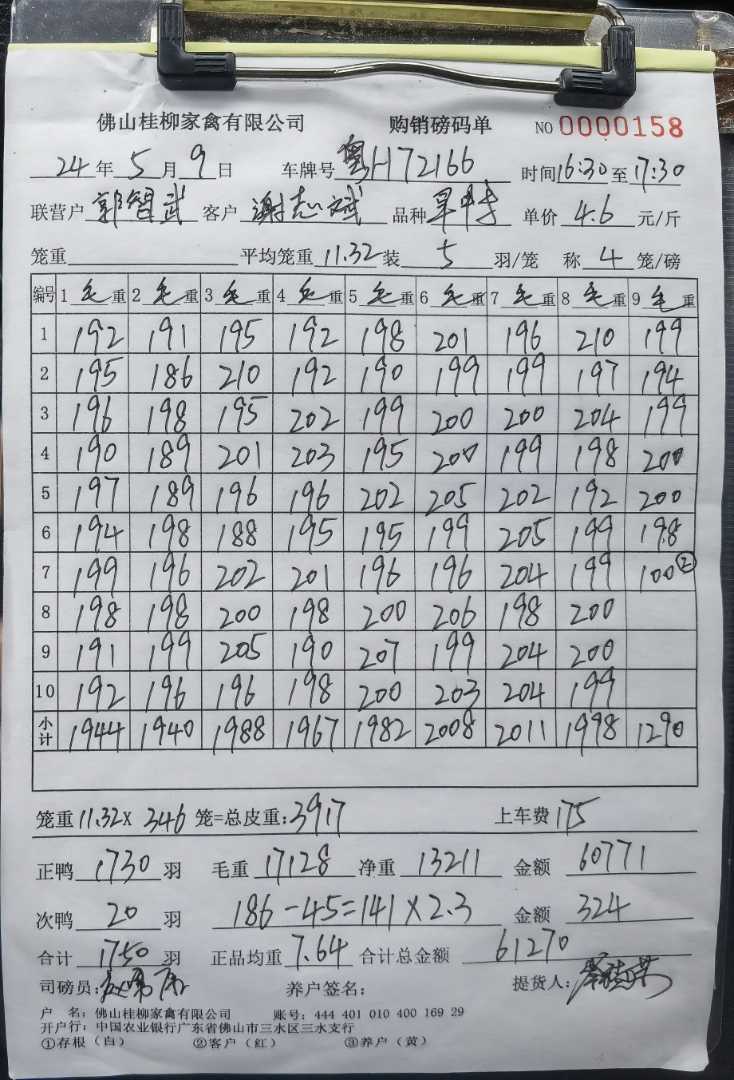 佛山桂柳家禽有限公司 购销磅码单 NO 0000158
24 年 5 月 9 日 车牌号 粤H72166 时间 16:30 至 17:30
联营户 郭智武 客户 谢志斌 品种 单价 4.6 元/斤
笼重 平均笼重 11.32 装 5 羽/笼 称 4 笼/磅
编号 1 毛 重 2 毛 重 3 毛 重 4 毛 重 5 毛 重 6 毛 重 7 毛 重 8 毛 重 9 毛 重
1 192 191 195 192 198 201 196 210 199
2 195 186 210 192 190 199 199 197 194
3 196 198 195 202 199 200 200 204 199
4 190 189 201 203 195 200 199 198 200
5 197 189 196 196 202 205 202 192 200
6 194 198 188 195 195 199 205 199 198
7 199 196 202 201 196 196 204 199 100②
8 198 198 200 198 200 206 198 200
9 191 199 205 190 207 199 204 200
10 192 196 196 198 200 203 204 199
小计 1944 1940 1988 1967 1982 2008 2011 1998 1290
笼重 11.32 X 346 笼=总皮重: 3917 上车费 175
正鸭 1730 羽 毛重 17128 净重 13211 金额 60771
次鸭 20 羽 186-45=141×2.3 金额 324
合计 1750 羽 正品均重 7.64 合计总金额 61270
司磅员: 养户签名: 提货人:
户 名: 佛山桂柳家禽有限公司 账号: 444 401 010 400 169 29
开户行: 中国农业银行广东省佛山市三水区三水支行
①存根（白） ②客户（红） ③养户（黄）